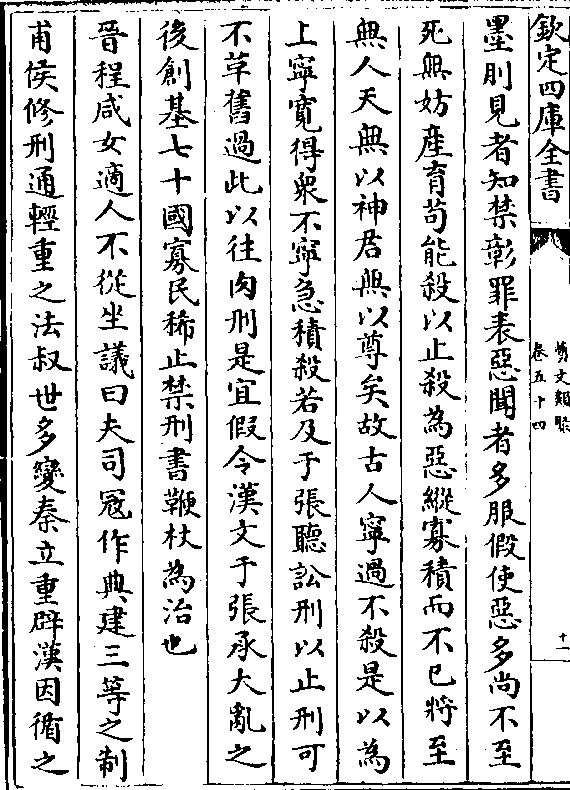 欽定四庫全書
藝文類聚
卷五十四
十一
墨刖見者知禁彰罪表惡聞者多服假使惡多尚不至
死無妨産育茍能殺以止殺為惡縱寡積而不已將至
無人天無以神君無以尊矣故古人寧過不殺是以為
上寧寛得衆不寧急積殺若及于張聽訟刑以止刑可
不革舊過此以往肉刑是宜假令漢文于張承大亂之
後創基七十國寡民稀止禁刑書鞭杖為治也
晉程咸女適人不從坐議曰夫司冦作典建三等之制
甫侯修刑通輕重之法叔世多變秦立重辟漢因循之